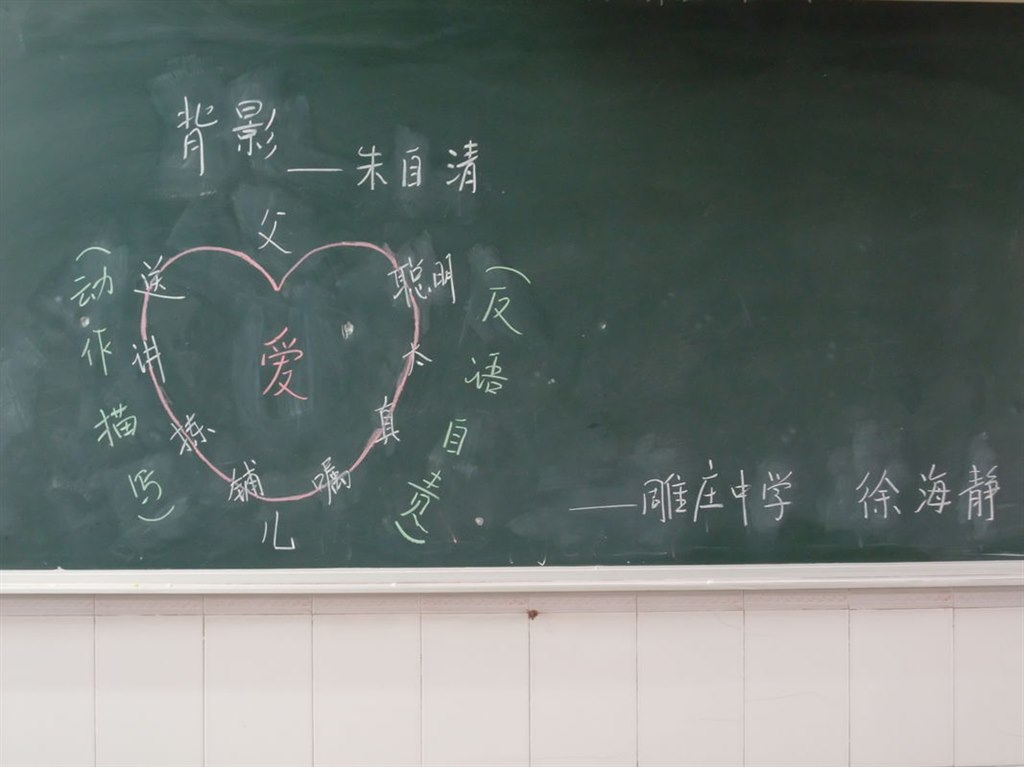 背影
——朱自清
父
送
讲
拣
铺
嘱
儿
聪明
太
真
爱
（动作描写）
（反语自责）
——雎庄中学 徐海静